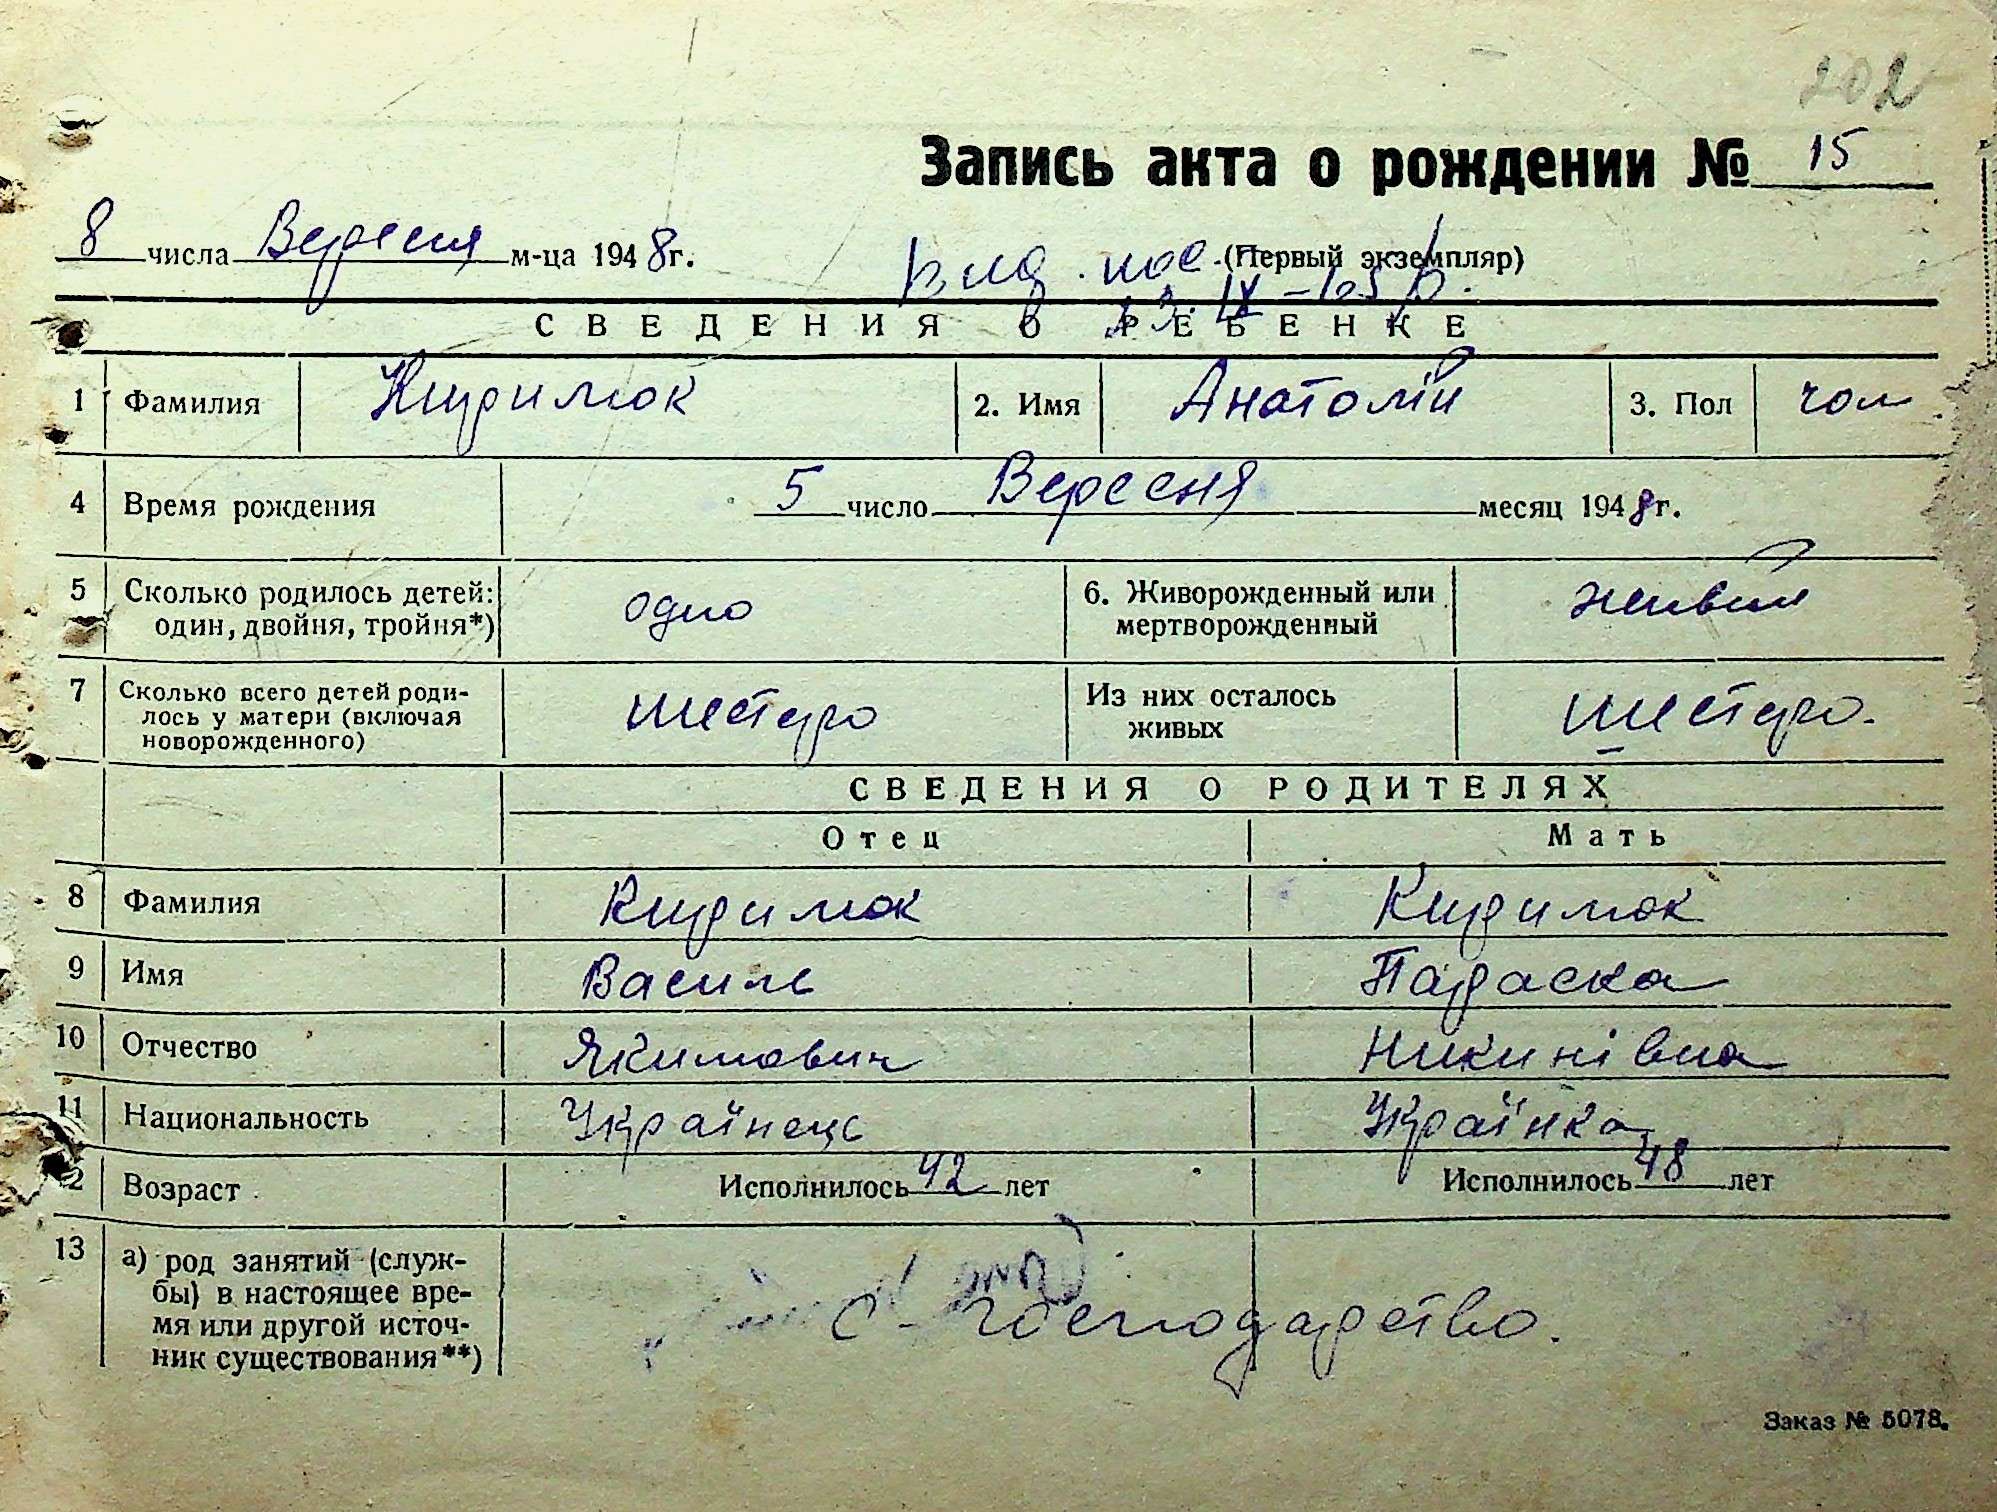 202
Запись акта о рождении № 15
8 числа Вересня м-ца 1948 г.
(Первый экземпляр)
СВЕДЕНИЯ О РЕБЕНКЕ
1 Фамилия Кидимюк 2. Имя Анатолій 3. Пол чол.
4 Время рождения 5 число Вересня месяц 1948 г.
5 Сколько родилось детей: один, двойня, тройня*) одно 6. Живорожденный или мертворожденный живий
7 Сколько всего детей родилось у матери (включая новорожденного) шестеро Из них осталось живых шестеро.
СВЕДЕНИЯ О РОДИТЕЛЯХ
Отец Мать
8 Фамилия Кидимюк Кидимюк
9 Имя Василь Параска
10 Отчество Якимович Никинівна
11 Национальность Українець Українка
12 Возраст Исполнилось 42 лет Исполнилось 48 лет
13 а) род занятий (службы) в настоящее время или другой источник существования**) с-господарство.
Заказ № 5078.